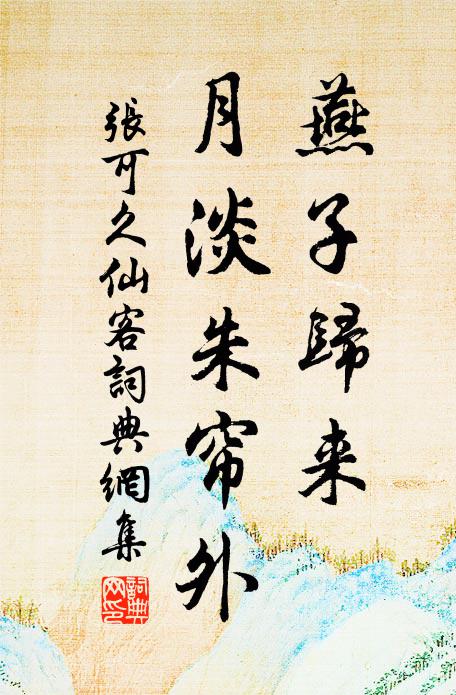 燕子歸来
月淡朱帘外
張可久仙客詞典網集
詞典網印